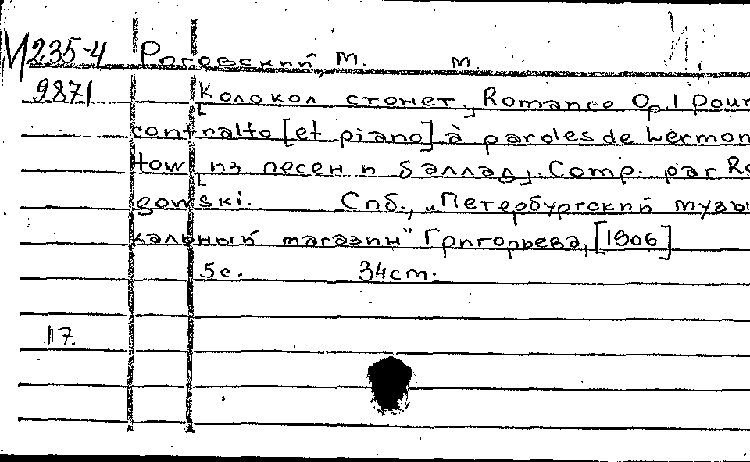 М235-4 Роговский, М. м.
9871 [Колокол стонет], Romance Op.1 pour
contralto [et piano] à paroles de Lermon
tow [из песен и баллад]. Comp. par Ro
gowski. Спб., „Петербургский музы
кальный магазин" Григорьева, [1906]
5с. 34cm.
17.